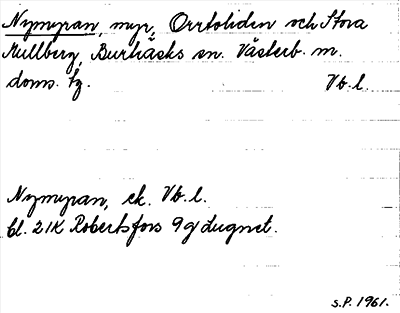 Nymyran, myr, Orrtoliden och Stora
Kullberg, Burträsks sn. Västerb. m.
doms. tg. Vb. l.
Nymyran, ek. Vb. l.
bl. 21K Robertsfors 9g Lugnet.
S.P. 1961.